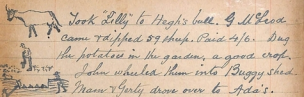 Took "Tilly" to Hagh's bull. G McLeod
came & dipped 59 sheep. Paid 4/6. Dug
the potatoes in the garden, a good crop.
John wheeled them into Buggy shed.
Mam & Gerty drove over to Ada's.